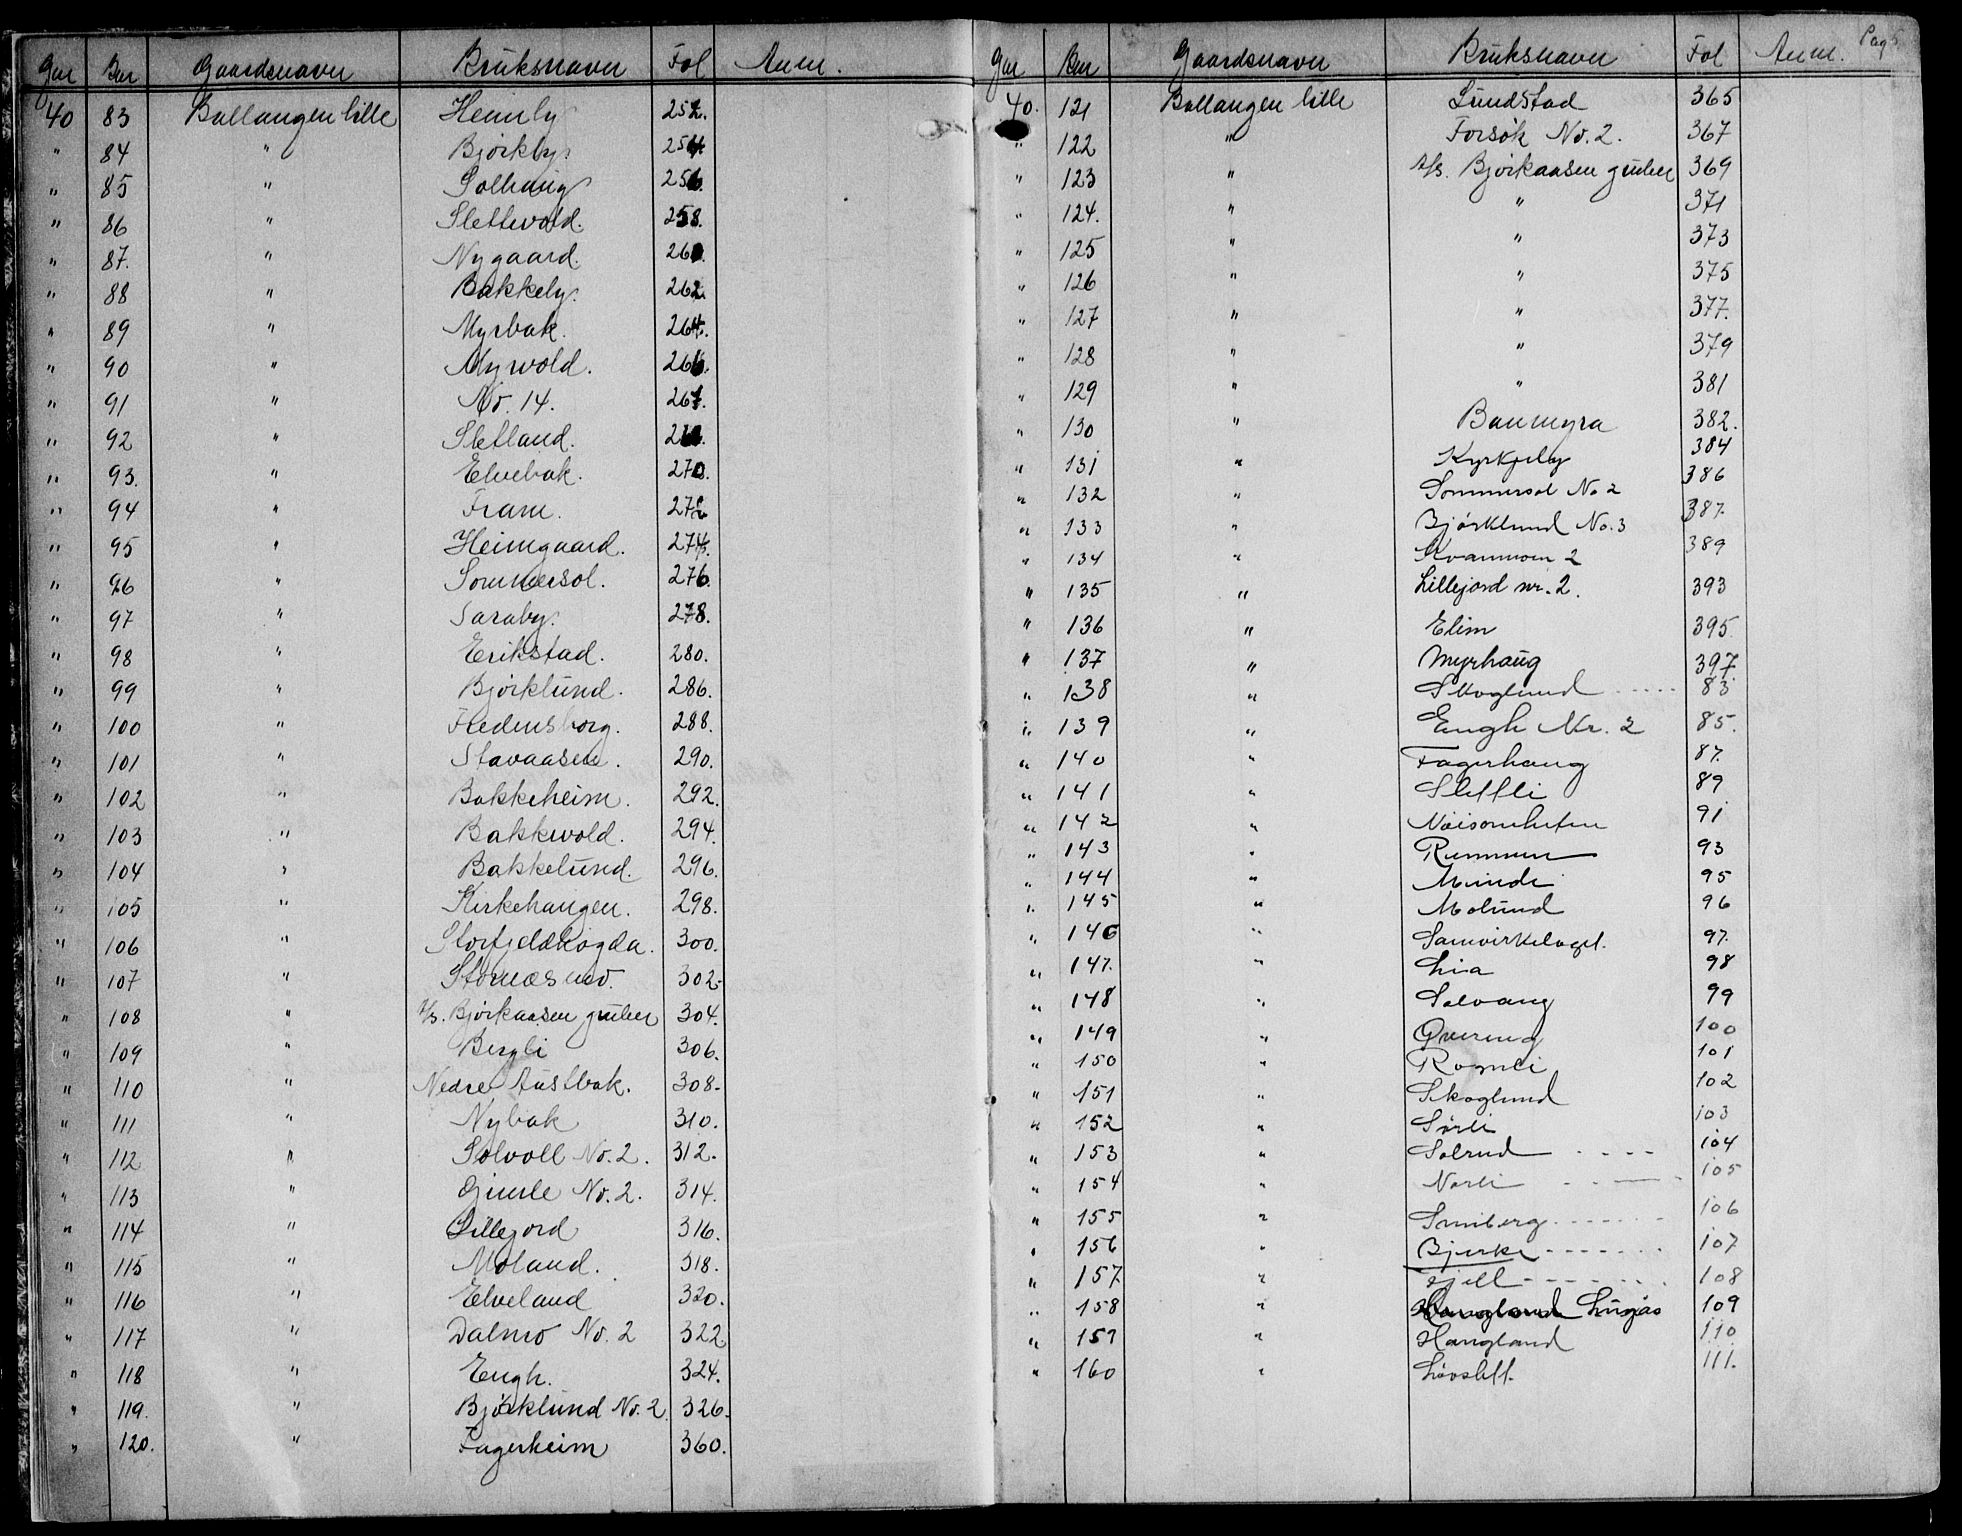 Gnr Bnr Gaardsnavn Bruksnavn Fol Anm.
40 83 Ballangen lille Heimly 252.
" 84 " Bjørkly. 254.
" 85 " Solhaug 256.
" 86 " Slettvold. 258.
" 87. " Nygaard. 260.
" 88 " Bakkely. 262.
" 89 " Myrbak. 264.
" 90 " Myrvold. 266.
" 91 " No. 14. 267.
" 92 " Sletland.
" 93. " Elvebak. 270.
" 94 " Fram. 272
" 95 " Heimgaard. 274.
" 96 " Sommersol. 276.
" 97 " Saraby. 278.
" 98 " Erikstad. 280.
" 99 " Bjørklund. 286.
" 100 " Fredensborg. 288.
" 101 " Stavaasen. 290.
" 102 " Bakkeheim. 292.
" 103 " Bakkevold. 294.
" 104 " Bakkelund. 296.
" 105 " Kirkehaugen. 298.
" 106 " Storfjeldhøgda. 300.
" 107 " Stornes mo. 302.
" 108 " A/S. Bjørkaasen gruber 304.
" 109 " Bergli 306.
" 110 " Nedre Austbak. 308.
" 111 " Nybak 310.
" 112 " Solvoll No. 2. 312.
" 113 " Gimle No. 2. 314.
" 114 " Lillejord 316.
" 115 " Moland. 318.
" 116 " Elveland 320.
" 117 " Dalmo No. 2 322.
" 118 " Engh. 324.
" 119. " Bjørklund No. 2 326.
" 120. " Fagerheim 360.
Pag 5
Gnr Bnr Gaardsnavn Bruksnavn Fol Anm.
40. 121 Ballangen lille Lundstad 365
" 122 " Forsøk No. 2. 367
" 123 " A/S. Bjørkaasen gruber 369
" 124. " " 371
" 125 " " 373
" 126 " " 375
" 127 " " 377.
" 128 " " 379
" 129 " " 381
" 130 " Baumyra 382.
" 131 " Kyrkjeby 384
" 132 " Sommersol No 2 386
" 133 " Bjørklund No. 3 387.
" 134 " Kvammom 2 389
" 135 " Lillejord nr. 2. 393
" 136 " Elim 395.
" 137 " Myrhaug 397
" 138 " Skoglund ..... 83
" 139 " Engh Nr. 2 85.
" 140 " Fagerhaug 87.
" 141 " Slettli 89
" 142 " 91
" 143 " 93
" 144 " Minde 95
" 145 " Molund 96
" 146 " Samvirkelaget. 97.
" 147. " Lia 98
" 148 " Solvang 99
" 149 " 100
" 150 " Rognli 101
" 151 " Skoglund 102
" 152 " Sørli 103
" 153 " Solrud .... 104
" 154 " Norli .... 105
" 155 " 106
" 156 " Bjerke ....... 107
" 157. " Fjell ....... 108
" 158 " Haugland Lugås 109
" 159 " Haugland 110
" 160 " Løvslett. 111.